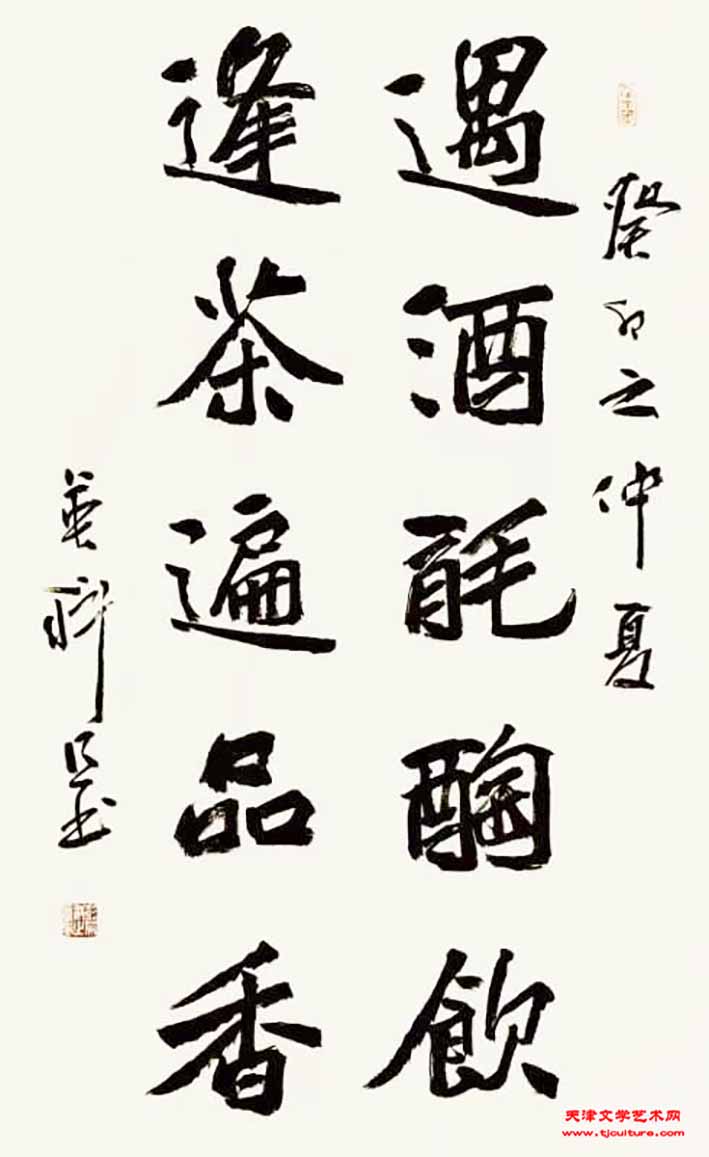 癸卯之仲夏
遇酒酕醄飲
逢茶遍品香
英科
天津文学艺术网
www.tjculture.com